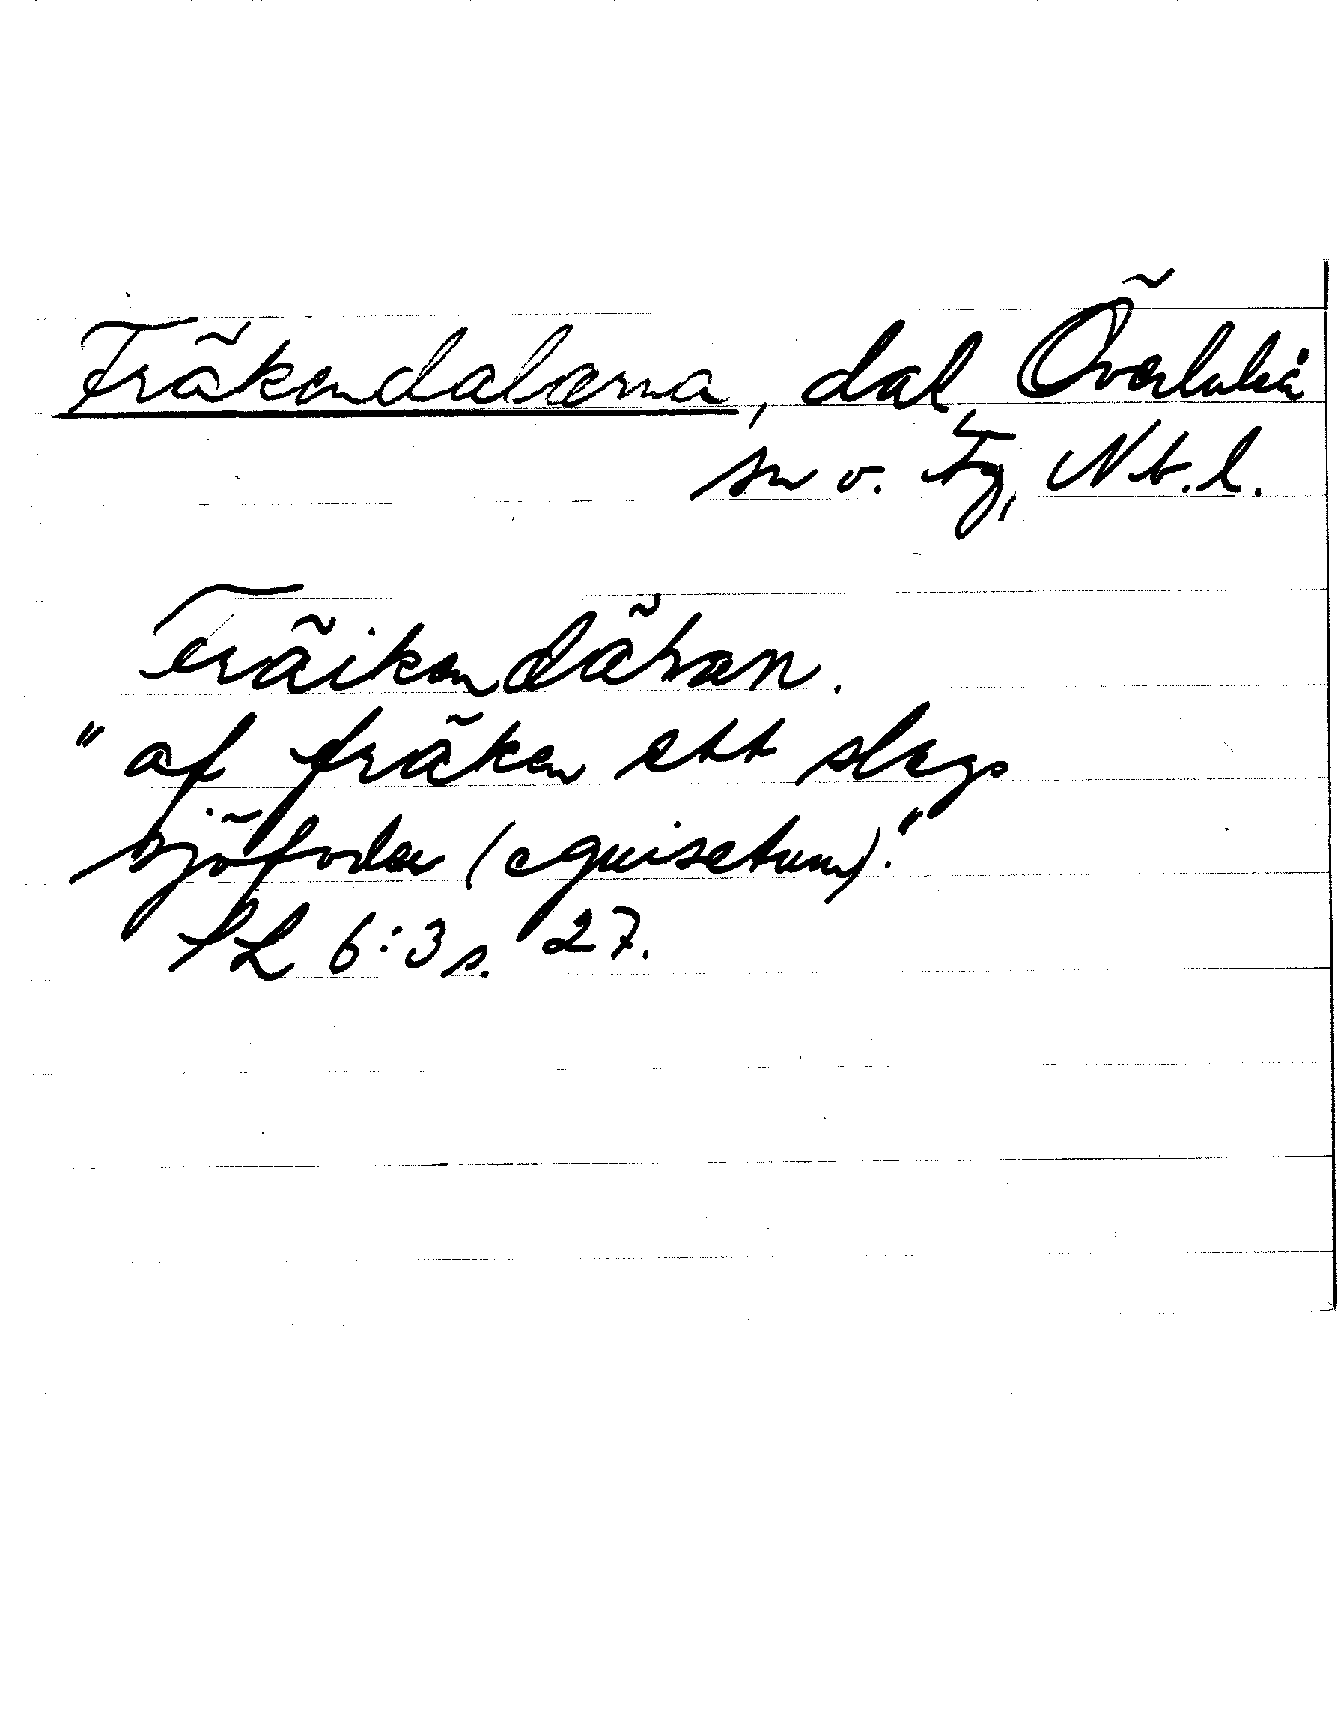 Fräkendalarna, dal, Överluleå
sn v. Fg, Nb.l.
Fräikendåhan.
"af fräken ett slags
sjöfoder (equisetum)."
SL 6:3 s. 27.